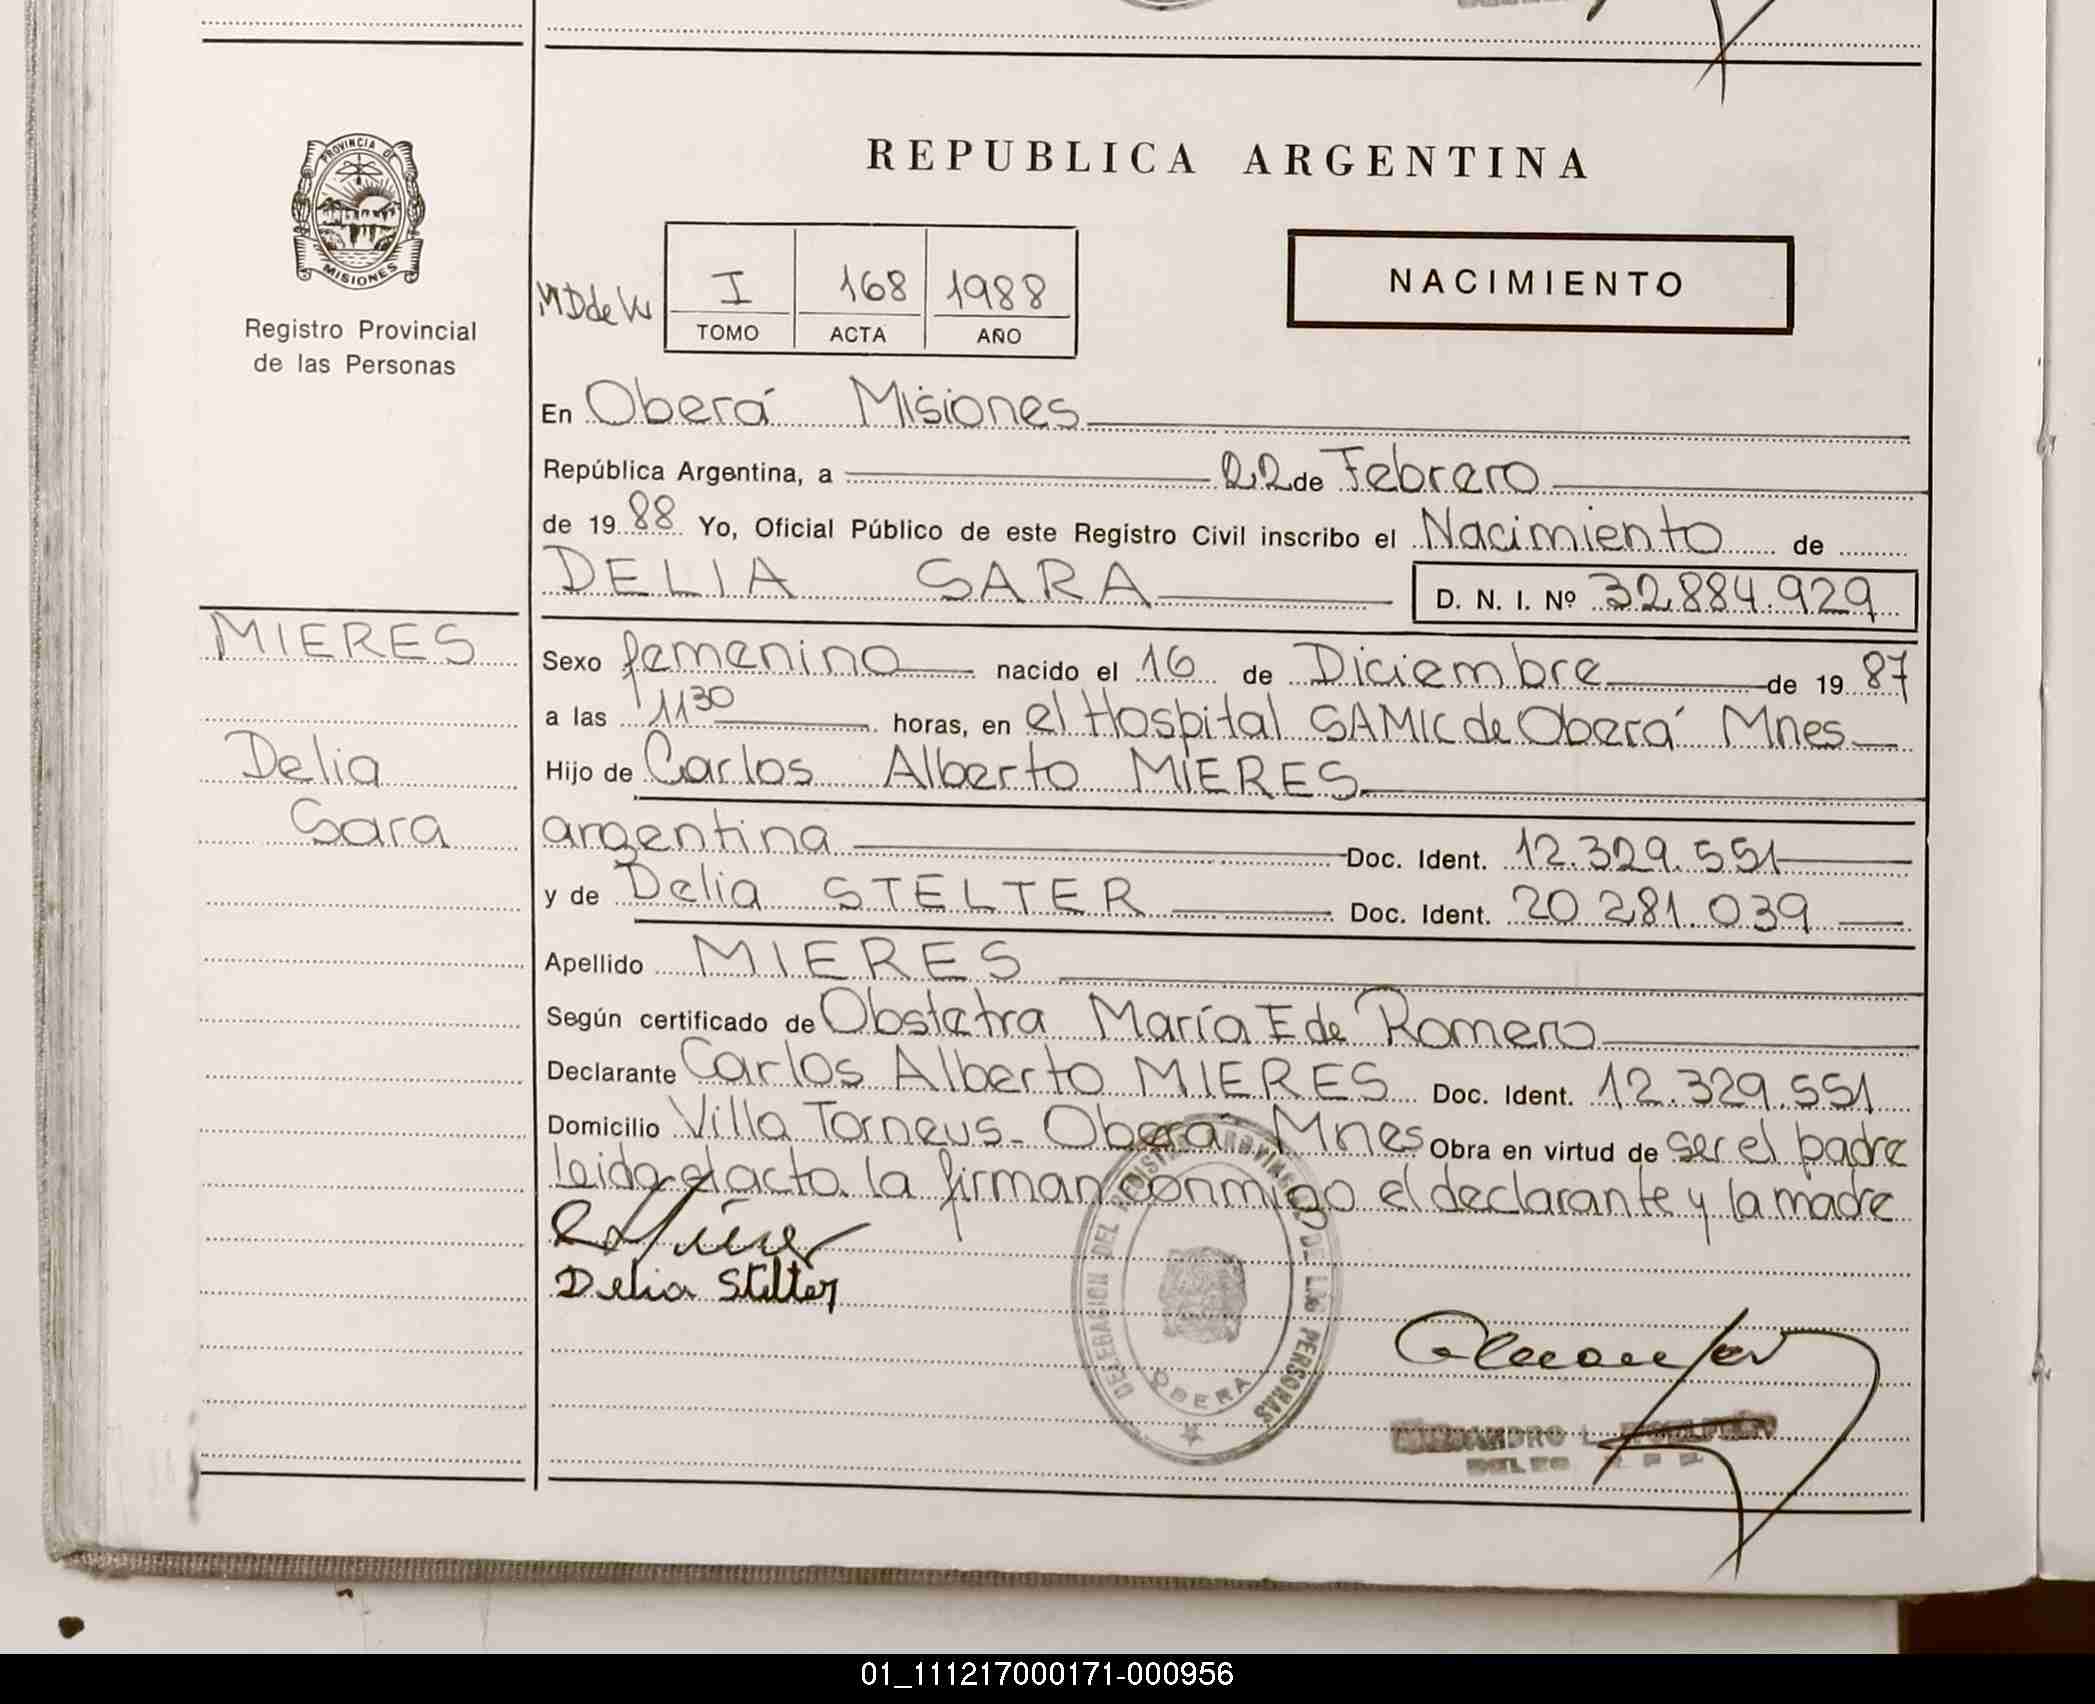 REPUBLICA ARGENTINA
PROVINCIA DE
MISIONES
Registro Provincial
de las Personas
NACIMIENTO
I 168 1988
TOMO ACTA AÑO
En Oberá Misiones
República Argentina, a 22 de Febrero
de 19 88 Yo, Oficial Público de este Registro Civil inscribo el Nacimiento de
DELIA SARA D. N. I. Nº 32.884.929
MIERES
Delia
Sara
Sexo femenino nacido el 16 de Diciembre de 19 87
a las 11 30 horas, en el Hospital SAMIC de Oberá Mnes
Hijo de Carlos Alberto MIERES
argentina Doc. Ident. 12.329.551
y de Delia STELTER Doc. Ident. 20 281.039
Apellido MIERES
Según certificado de Obstetra María E de Romero
Declarante Carlos Alberto MIERES Doc. Ident. 12.329.551
Domicilio Villa Torneus - Oberá Mnes Obra en virtud de ser el padre
Leida el acta la firman conmigo el declarante y la madre
Delia Stelter
DELEGACION DEL REGISTRO PROVINCIAL DE LAS PERSONAS
OBERA
01_111217000171-000956